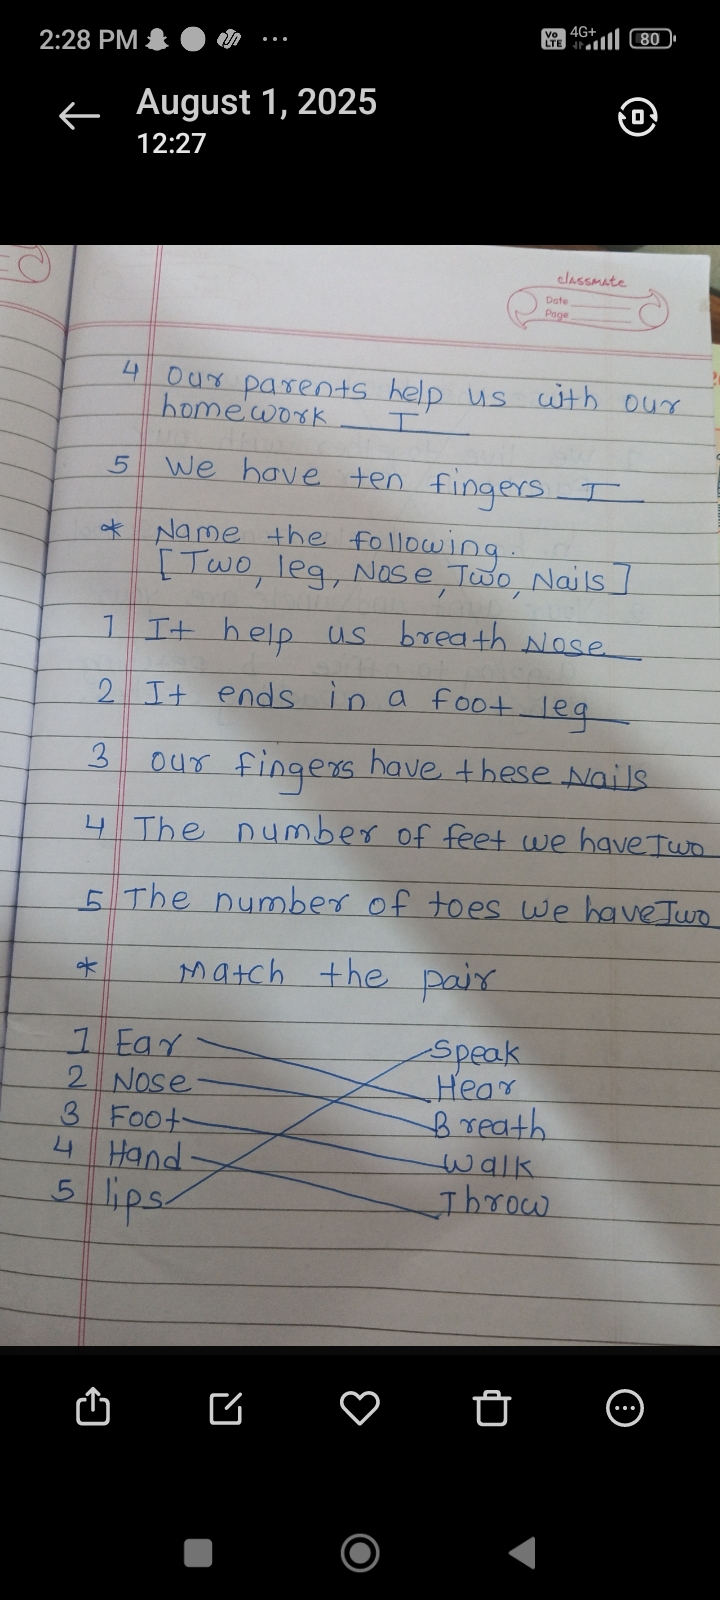 2:28 PM
Vo LTE 4G+ 80
August 1, 2025
12:27
classmate
Date
Page
4 Our parents help us with our
homework I
5 We have ten fingers I
* Name the following.
[Two, leg, Nose, Two, Nails]
1 It help us breath Nose
2 It ends in a foot leg
3 our fingers have these Nails
4 The number of feet we have Two
5 The number of toes we have Two
* Match the pair
1 Ear Speak
2 Nose Hear
3 Foot Breath
4 Hand Walk
5 lips Throw